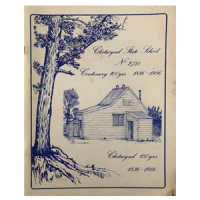 Chetwynd State School
No 1738
Centenary 100 yrs 1886 - 1986
Chetwynd 150 yrs
1836 - 1986